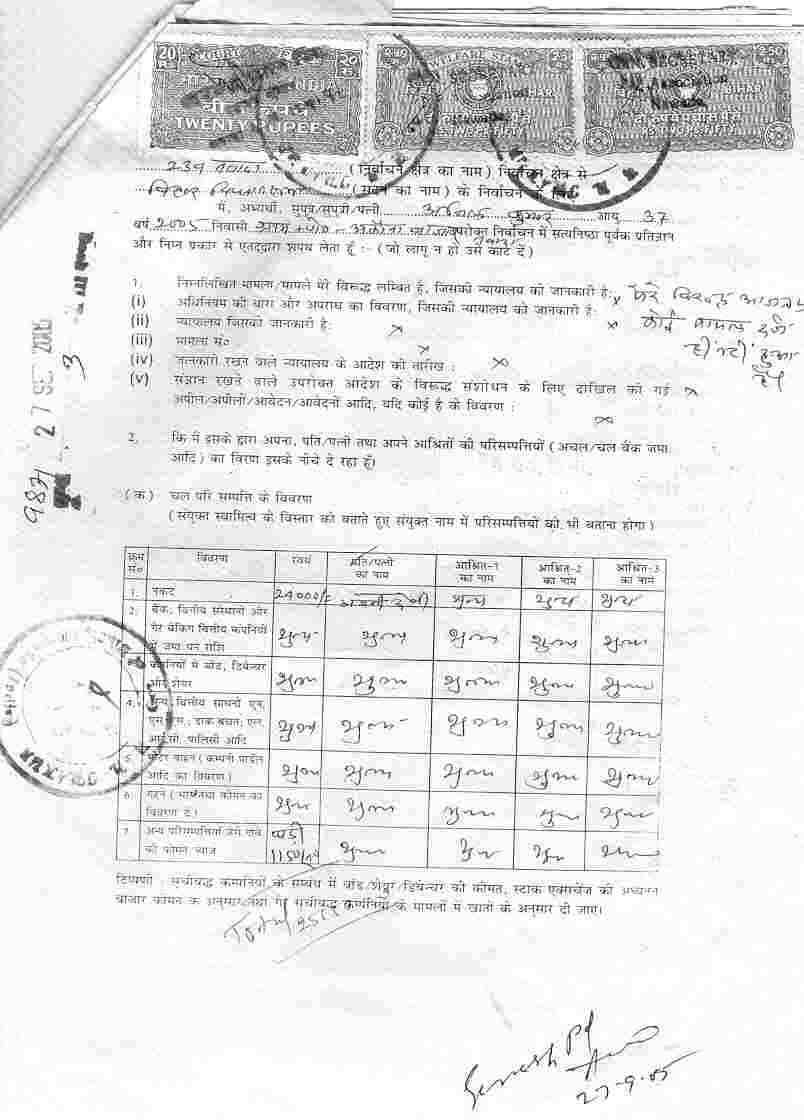 20 20
RS. RS.
INDIA
TWENTY RUPEES
WELFARE STAMP
BIHAR
RS.TWO PS.FIFTY
2.50
BIHAR
दो रुपये पचास पैसे
RS.TWO PS.FIFTY
239 नवादा (निर्वाचन क्षेत्र का नाम) निर्वाचन क्षेत्र से
बिहार विधान सभा (सदन का नाम) के निर्वाचन के लिए
मैं, अभ्यर्थी, सुपुत्र/सुपुत्री/पत्नी कुमार आयु 37
वर्ष 2005 निवासी ग्राम + पो० - उपरोक्त निर्वाचन में सत्यनिष्ठा पूर्वक प्रतिज्ञान
और निम्न प्रकार से एतदद्वारा शपथ लेता हूँ :- (जो लागू न हो उसे काट दें)
1. निम्नलिखित मामला/मामले मेरे विरूद्ध लम्बित है, जिसकी न्यायालय को जानकारी है: x मेरे विरुद्ध आजतक
(i) अधिनियम की धारा और अपराध का विवरण, जिसकी न्यायालय को जानकारी है: x कोई मामला दर्ज
(ii) न्यायालय जिसको जानकारी है: x
(iii) मामला सं० x ही नहीं हुआ
(iv) जानकारी रखने वाले न्यायालय के आदेश की तारीख : x है।
(v) संज्ञान रखने वाले उपरोक्त आदेश के विरूद्ध संशोधन के लिए दाखिल की गई x
अपील/अपीलों/आवेदन/आवेदनों आदि, यदि कोई है के विवरण : x
2. कि मैं इसके द्वारा अपना, पति/पत्नी तथा अपने आश्रितों की परिसम्पत्तियों (अचल/चल बैंक जमा
आदि) का विरण इसके नीचे दे रहा हूँ।
(क) चल परि सम्पत्ति के विवरण
(संयुक्त स्वामित्व के विस्तार को बताते हुए संयुक्त नाम में परिसम्पत्तियों को भी बताना होगा)
क्रम सं० विवरण स्वयं पति/पत्नी का नाम आश्रित-1 का नाम आश्रित-2 का नाम आश्रित-3 का नाम
1. नकद 24000/= देवी शुन्य शुन्य शुन्य
2. बैंक, वित्तीय संस्थानों और
गैर बैंकिंग वित्तीय कंपनियों शुन्य शुन्य शुन्य शुन्य शुन्य
में जमा धन राशि
कंपनियों में बांड, डिबेन्चर शुन्य शुन्य शुन्य शुन्य शुन्य
और शेयर
4. अन्य वित्तीय साधनों एन.
एस.एस., डाक बचत, एल. शुन्य शुन्य शुन्य शुन्य शुन्य
आई.सी. पालिसी आदि
5. मोटर वाहन (कम्पनी माडेल शुन्य शुन्य शुन्य शुन्य शुन्य
आदि का विवरण)
6. गहने (भार तथा कीमत का शुन्य शुन्य शुन्य शुन्य शुन्य
विवरण दें)
7. अन्य परिसम्पत्तियां जैसे दावे घड़ी शुन्य शुन्य शुन्य शुन्य
की कीमत ब्याज
टिप्पणी : सूचीबद्ध कम्पनियों के सम्बंध में बांड/शेयर/डिबेन्चर की कीमत, स्टाक एक्सचेंज की अध्यतन
बाजार कीमत के अनुसार तथा गैर सूचीबद्ध कम्पनियों के मामलों में खातों के अनुसार दी जाए।
Total
27-9-05